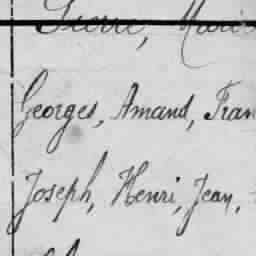 Pierre, Marie
Georges, Amand, Fran
Joseph, Henri, Jean,